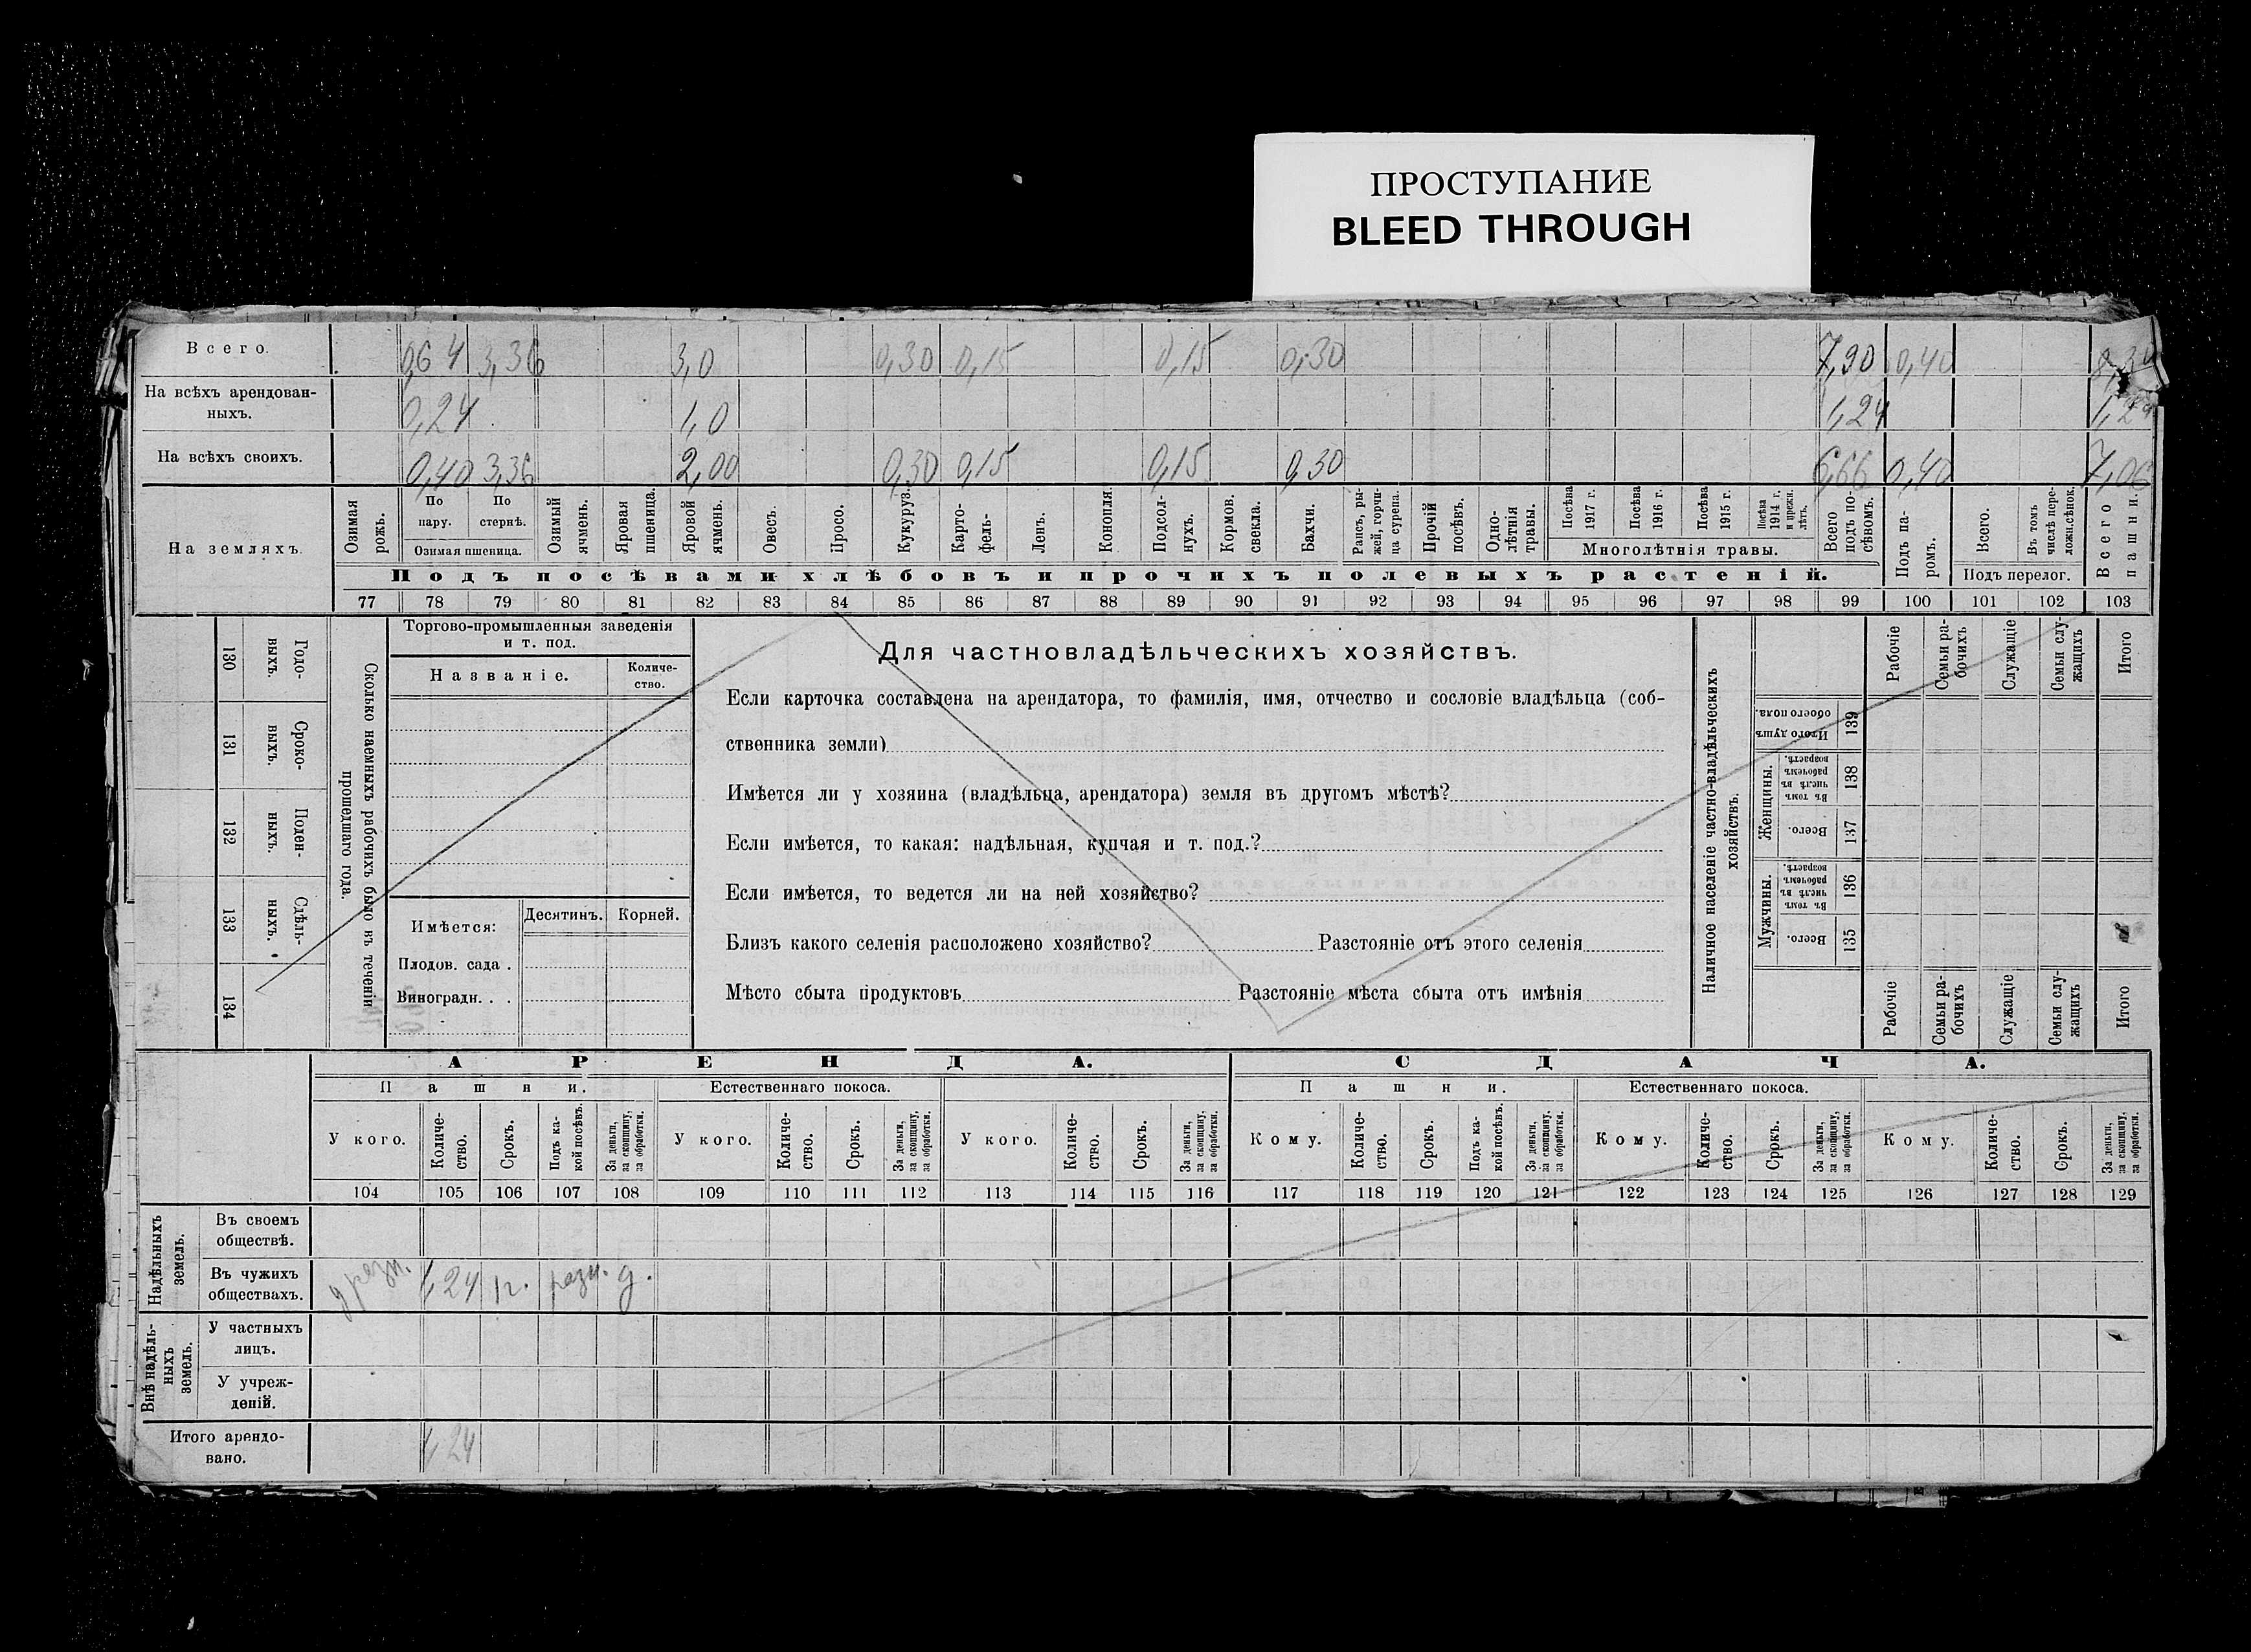 ПРОСТУПАНИЕ
BLEED THROUGH
Всего. 0,64 3,36 3,0 0,30 0,15 0,15 0,30 7,90 0,40 8,30
На всѣхъ арендован-
ныхъ. 0,24 1,0 1,24 1,24
На всѣхъ своихъ. 0,40 3,36 2,00 0,30 0,15 0,15 0,30 6,66 0,40 7,06
На земляхъ.
Озимая рожь.
По пару.
По стернѣ.
Озимая пшеница.
Озимый ячмень.
Яровая пшеница.
Яровой ячмень.
Овесъ.
Просо.
Кукуруз.
Карто-
фель.
Ленъ.
Конопля.
Подсол-
нухъ.
Кормов. свекла.
Бахчи.
Рапсъ, ры-
жей, горчи-
ца сурепа.
Прочій посѣвъ.
Одно-
лѣтнія травы.
Посѣва 1917 г.
Посѣва 1916 г.
Посѣва 1915 г.
Посѣва 1914 г. и прежн. лѣтъ.
Многолѣтнія травы.
Всего подъ по-
сѣвомъ.
Подъ па-
ромъ.
Всего.
Въ томъ числѣ пере-
ложн.сѣнок.
Подъ перелог.
Всего пашни.
Подъ посѣвами хлѣбовъ и прочихъ полевыхъ растеній.
77 78 79 80 81 82 83 84 85 86 87 88 89 90 91 92 93 94 95 96 97 98 99 100 101 102 103
130 Годо-
выхъ.
131 Сроко-
ныхъ.
132 Поден-
ныхъ.
133 Сдѣль-
ныхъ.
134
Сколько наемныхъ рабочихъ было въ теченіи
прошедшаго года.
Торгово-промышленныя заведенія
и т. под.
Названіе.
Количе-
ство.
Имѣется:
Десятинъ.
Корней.
Плодов. сада .
Виноградн. . .
Для частновладѣльческихъ хозяйствъ.
Если карточка составлена на арендатора, то фамилія, имя, отчество и сословіе владѣльца (соб-
ственника земли)
Имѣется ли у хозяина (владѣльца, арендатора) земля въ другомъ мѣстѣ?
Если имѣется, то какая: надѣльная, купчая и т. под.?
Если имѣется, то ведется ли на ней хозяйство?
Близъ какого селенія расположено хозяйство? Разстояніе отъ этого селенія
Мѣсто сбыта продуктовъ Разстояніе мѣста сбыта отъ имѣнія
Наличное населеніе частно-владѣльческихъ
хозяйствъ.
Рабочіе
Семьи ра-
бочихъ
Служащіе
Семьи слу-
жащихъ
Итого
Итого душъ обоего пола. 139
Женщины.
Въ томъ числѣ въ рабочемъ возрастѣ. 138
Всего. 137
Мужчины.
Въ томъ числѣ въ рабочемъ возрастѣ. 136
Всего. 135
Рабочіе
Семьи ра-
бочихъ
Служащіе
Семьи слу-
жащихъ
Итого
АРЕНДА. СДАЧА.
Пашни. Естественнаго покоса. Пашни. Естественнаго покоса.
У кого.
Количе-
ство.
Срокъ.
Подъ ка-
кой посѣвъ.
За деньги,
за скопщину,
за обработки.
У кого.
Количе-
ство.
Срокъ.
За деньги,
за скопщину,
за обработки.
У кого.
Количе-
ство.
Срокъ.
За деньги,
за скопщину,
за обработки.
Кому.
Количе-
ство.
Срокъ.
Подъ ка-
кой посѣвъ.
За деньги,
за скопщину,
за обработки.
Кому.
Количе-
ство.
Срокъ.
За деньги,
за скопщину,
за обработки.
Кому.
Количе-
ство.
Срокъ.
За деньги,
за скопщину,
за обработки.
104 105 106 107 108 109 110 111 112 113 114 115 116 117 118 119 120 121 122 123 124 125 126 127 128 129
Надѣльныхъ
земель.
Въ своемъ
обществѣ.
Въ чужихъ
обществахъ. у разн. 1,24 1г. разн. д.
Внѣ надѣль-
ныхъ
земель.
У частныхъ
лицъ.
У учреж-
деній.
Итого арендо-
вано. 1,24